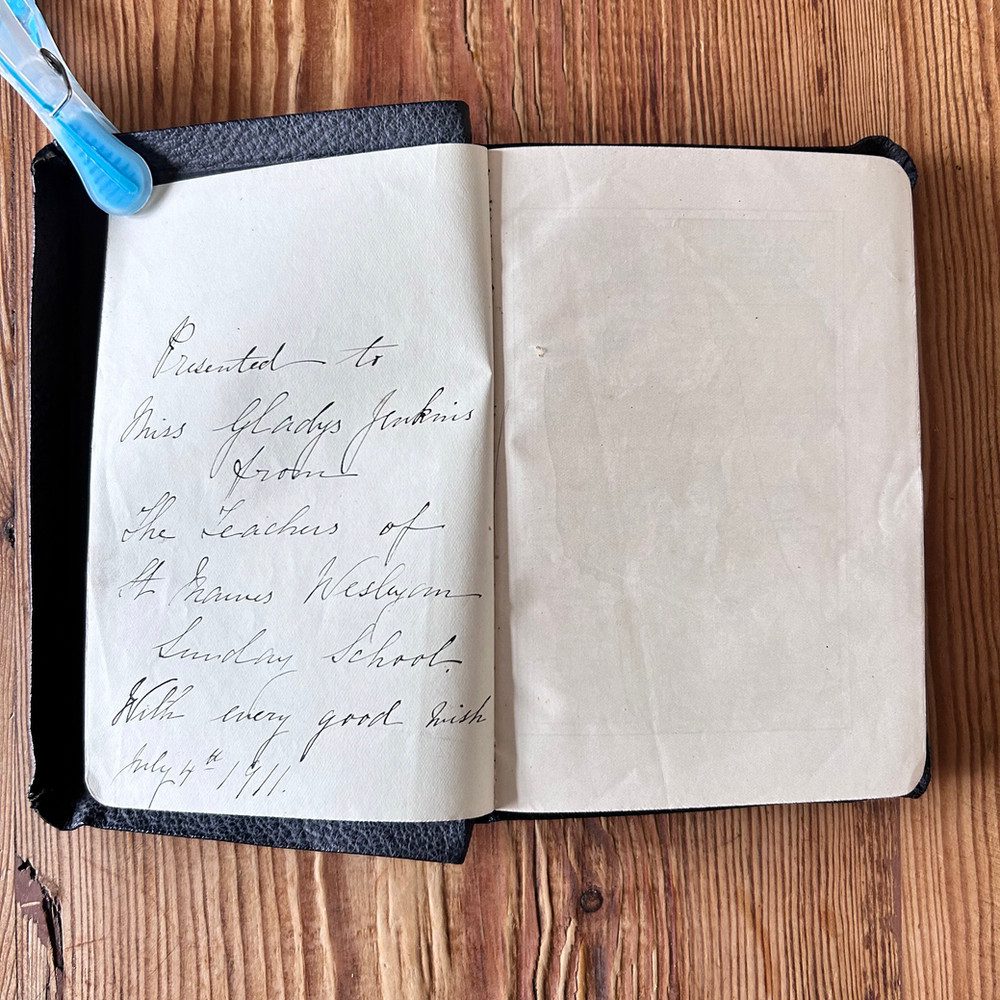 Presented to
Miss Gladys Jenkins
from
The Teachers of
St Wesleyan
Sunday School.
With every good wish
July 4th 1911.